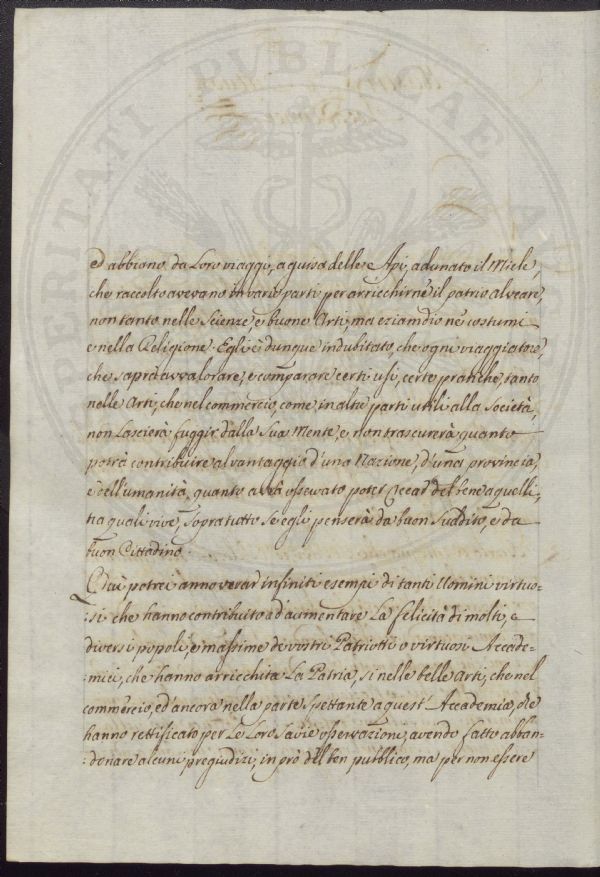 PROSPERITATI PUBLICAE AUG
ed abbiano da Loro viaggi, a guisa delle Api, adunato il Miele,
che raccolto avevano in varie parti per arricchirne il patrio alveare,
non tanto nelle Scienze e buone Arti, ma eziamdio ne costumi
e nella Religione. Egli è dunque indubitato, che ogni viaggiatore,
che saprà avvalorare, e comparare certi usi, certe pratiche, tanto
nelle Arti, che nel commercio, come in altre parti utili alla Società,
non Lascierà fuggir dalla Sua Mente, e non trascurerà quanto
potrà contribuire al vantaggio d'una Nazione, d'una provincia,
e dell'umanità, quanto avrà osservato poter recar del bene a quelli,
tra quali vive, sopra tutto se egli penserà da buon Suddito, e da
buon Cittadino.
Quì potrei annoverar infiniti esempi di tanti Uomini virtuo=
:si che hanno contribuito ad aumentare La felicità di molti, e
diversi popoli, e massime di vostri Patriotti o virtuosi Accade=
:mici, che hanno arricchita La Patria, si nelle belle arti, che nel
commercio, ed ancora nella parte spettante a quest' Accademia, che
hanno rettificato per Le Loro savie osservazioni, avendo fatto abban=
:donare alcuni pregiudizi, in prò del ben pubblico, ma per non essere